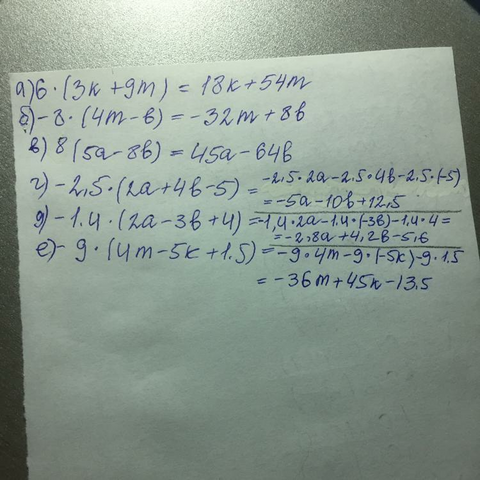 а) 6 · (3к + 9m) = 18к + 54m
б) - 8 · (4m - в) = - 32m + 8в
в) 8 (5а - 8в) = 45а - 64в
г) - 2,5 · (2а + 4в - 5) = -2,5 · 2а - 2,5 · 4в - 2,5 · (-5)
= -5а - 10в + 12,5
д) - 1.4 · (2а - 3в + 4) = -1,4 · 2а - 1.4 · (-3в) - 1.4 · 4 =
= -2,8а + 4,2в - 5,6
е) - 9 · (4m - 5к + 1.5) = - 9 · 4m - 9 · (-5к) - 9 · 1.5
= - 36m + 45к - 13.5